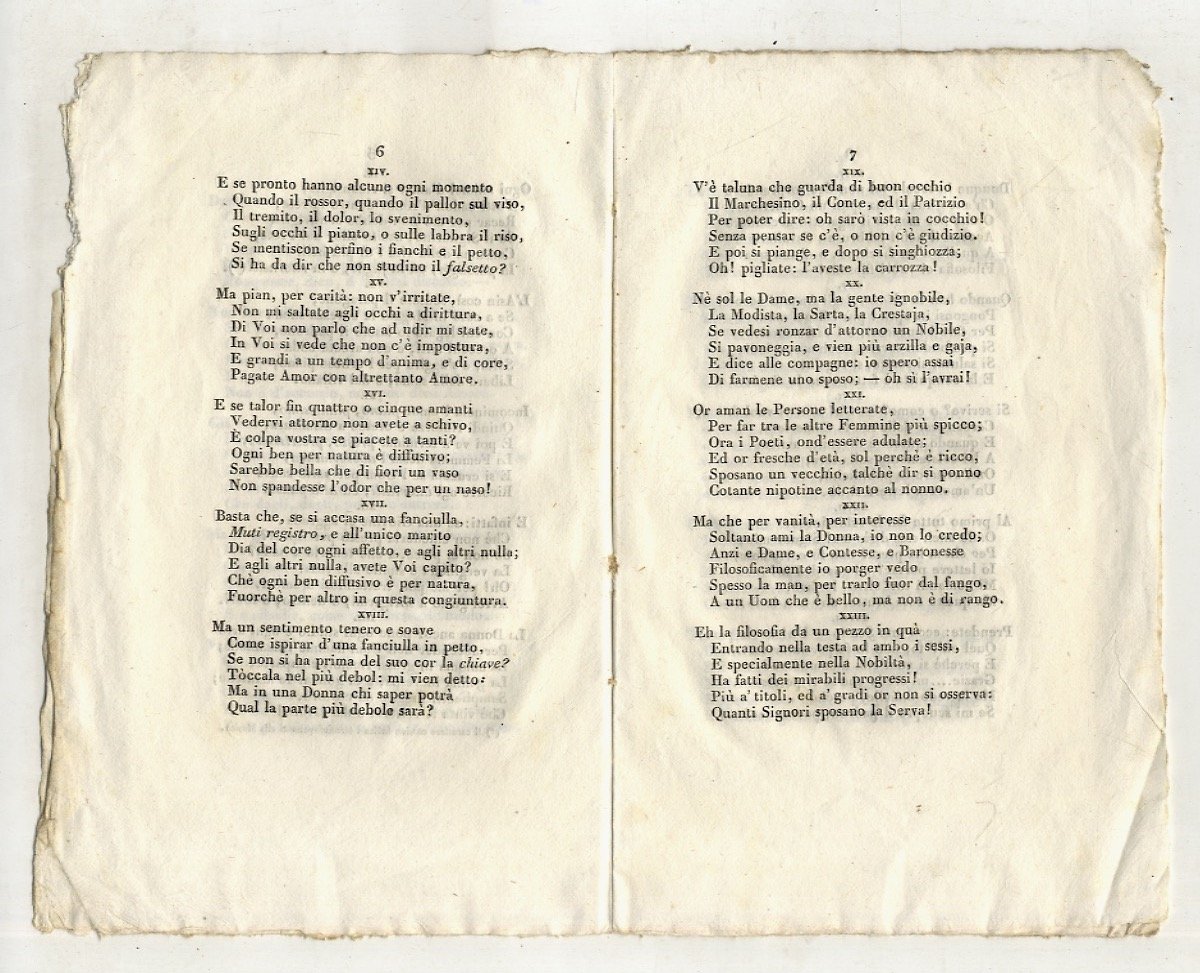 6
XIV.
E se pronto hanno alcune ogni momento
Quando il rossor, quando il pallor sul viso,
Il tremito, il dolor, lo svenimento,
Sugli occhi il pianto, o sulle labbra il riso,
Se mentiscon perfino i fianchi e il petto,
Si ha da dir che non studino il falsetto?
XV.
Ma pian, per carità: non v'irritate,
Non mi saltate agli occhi a dirittura,
Di Voi non parlo che ad udir mi state,
In Voi si vede che non c'è impostura,
E grandi a un tempo d'anima, e di core,
Pagate Amor con altrettanto Amore.
XVI.
E se talor fin quattro o cinque amanti
Vedervi attorno non avete a schivo,
È colpa vostra se piacete a tanti?
Ogni ben per natura è diffusivo;
Sarebbe bella che di fiori un vaso
Non spandesse l'odor che per un naso!
XVII.
Basta che, se si accasa una fanciulla,
Muti registro, e all'unico marito
Dia del core ogni affetto, e agli altri nulla;
E agli altri nulla, avete Voi capito?
Chè ogni ben diffusivo è per natura,
Fuorchè per altro in questa congiuntura.
XVIII.
Ma un sentimento tenero e soave
Come ispirar d'una fanciulla in petto,
Se non si ha prima del suo cor la chiave?
Tòccala nel più debol: mi vien detto:
Ma in una Donna chi saper potrà
Qual la parte più debole sarà?
7
XIX.
V'è taluna che guarda di buon occhio
Il Marchesino, il Conte, ed il Patrizio
Per poter dire: oh sarò vista in cocchio!
Senza pensar se c'è, o non c'è giudizio.
E poi si piange, e dopo si singhiozza;
Oh! pigliate: l'aveste la carrozza!
XX.
Nè sol le Dame, ma la gente ignobile,
La Modista, la Sarta, la Crestaja,
Se vedesi ronzar d'attorno un Nobile,
Si pavoneggia, e vien più arzilla e gaja,
E dice alle compagne: io spero assai
Di farmene uno sposo; — oh sì l'avrai!
XXI.
Or aman le Persone letterate,
Per far tra le altre Femmine più spicco;
Ora i Poeti, ond'essere adulate;
Ed or fresche d'età, sol perchè è ricco,
Sposano un vecchio, talchè dir si ponno
Cotante nipotine accanto al nonno.
XXII.
Ma che per vanità, per interesse
Soltanto ami la Donna, io non lo credo;
Anzi e Dame, e Contesse, e Baronesse
Filosoficamente io porger vedo
Spesso la man, per trarlo fuor dal fango,
A un Uom che è bello, ma non è di rango.
XXIII.
Eh la filosofia da un pezzo in quà
Entrando nella testa ad ambo i sessi,
E specialmente nella Nobiltà,
Ha fatti dei mirabili progressi!
Più a' titoli, ed a' gradi or non si osserva:
Quanti Signori sposano la Serva!